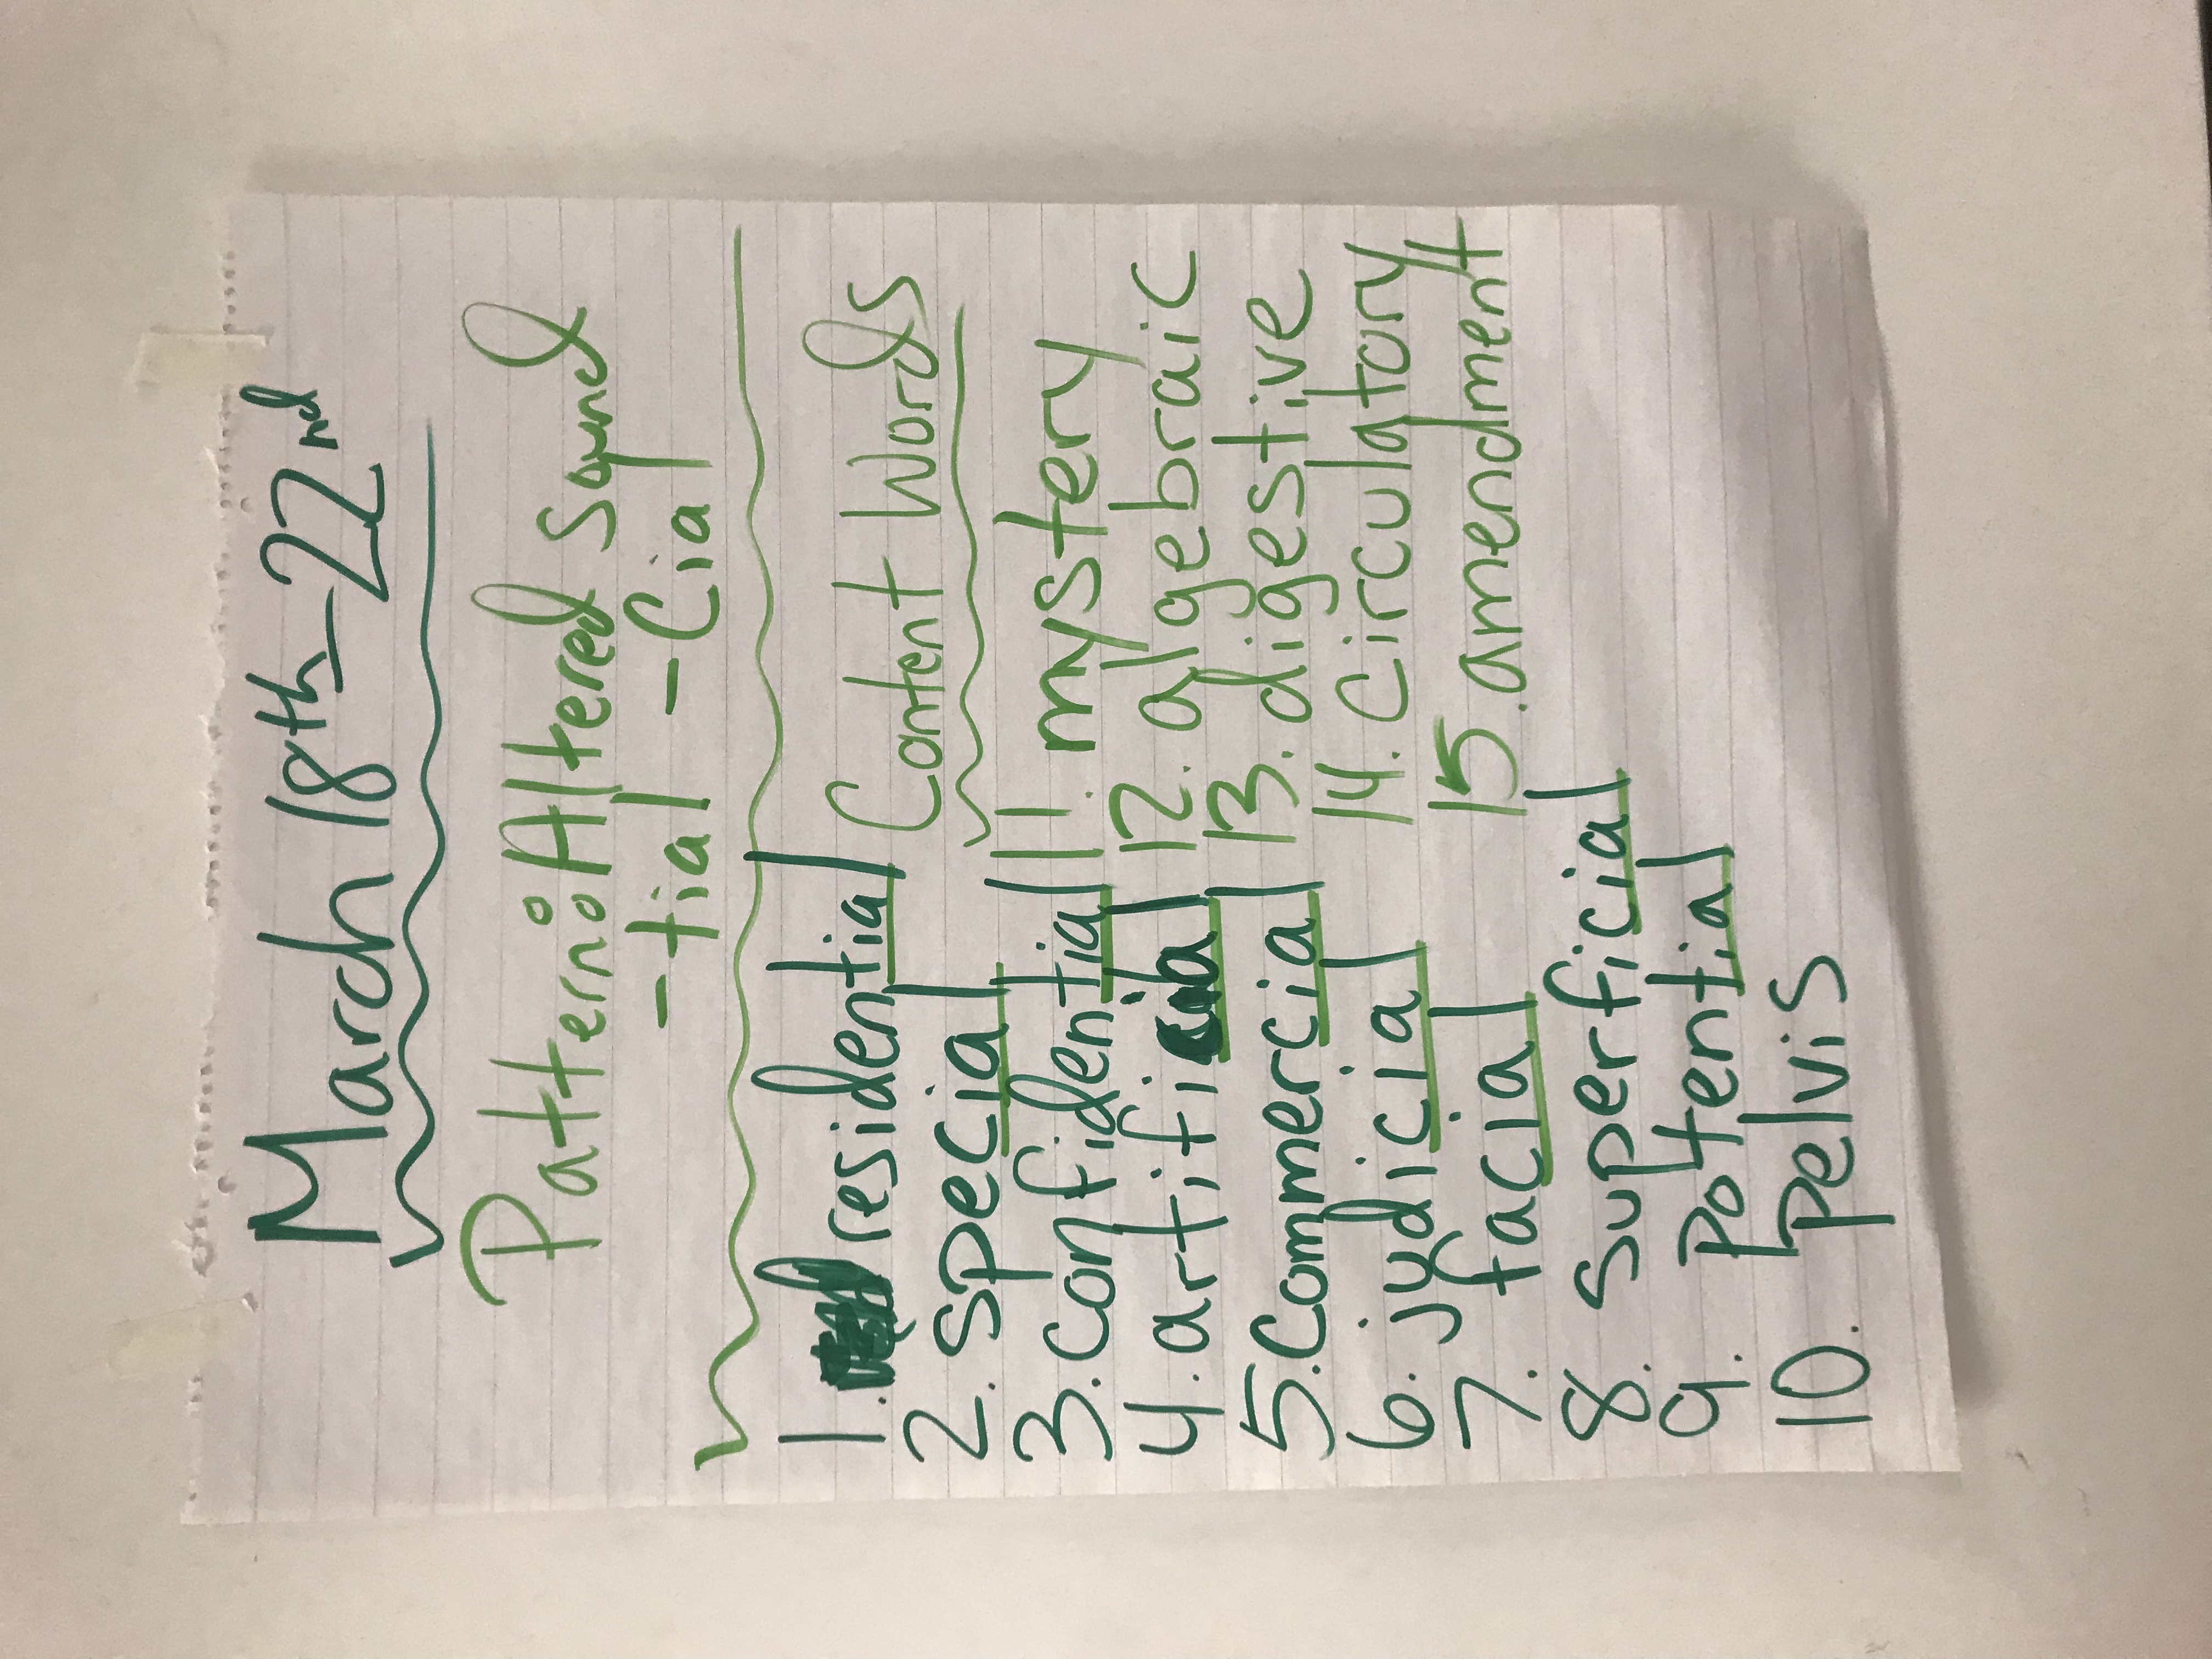 March 18th-22nd
Pattern: Altered Sound
-tial -cial
1. residential
2. special
3. confidential
4. artificial
5. Commercial
6. judicial
7. facial
8. superficial
9. potential
10. pelvis
Content Words
11. mystery
12. algebraic
13. digestive
14. Circulatory
15. amendment